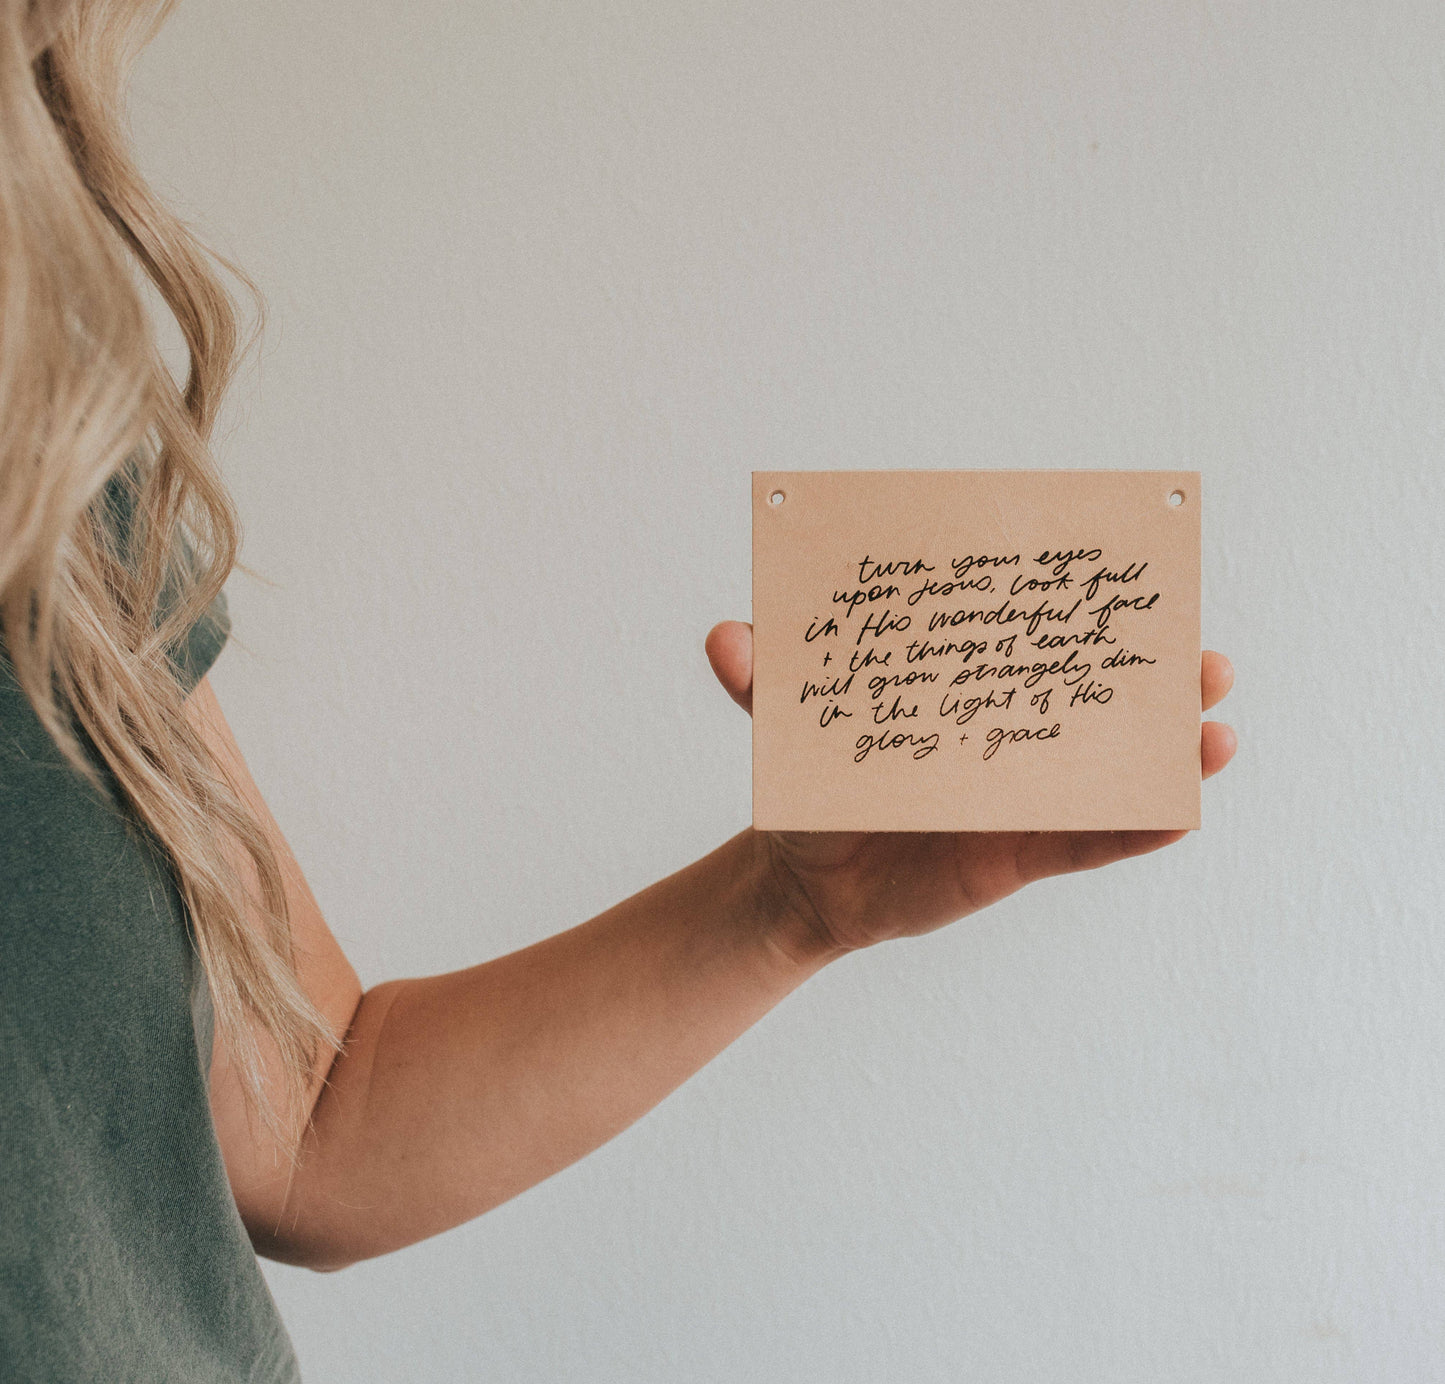 turn your eyes
upon Jesus, look full
in His wonderful face
+ the things of earth
will grow strangely dim
in the light of His
glory + grace